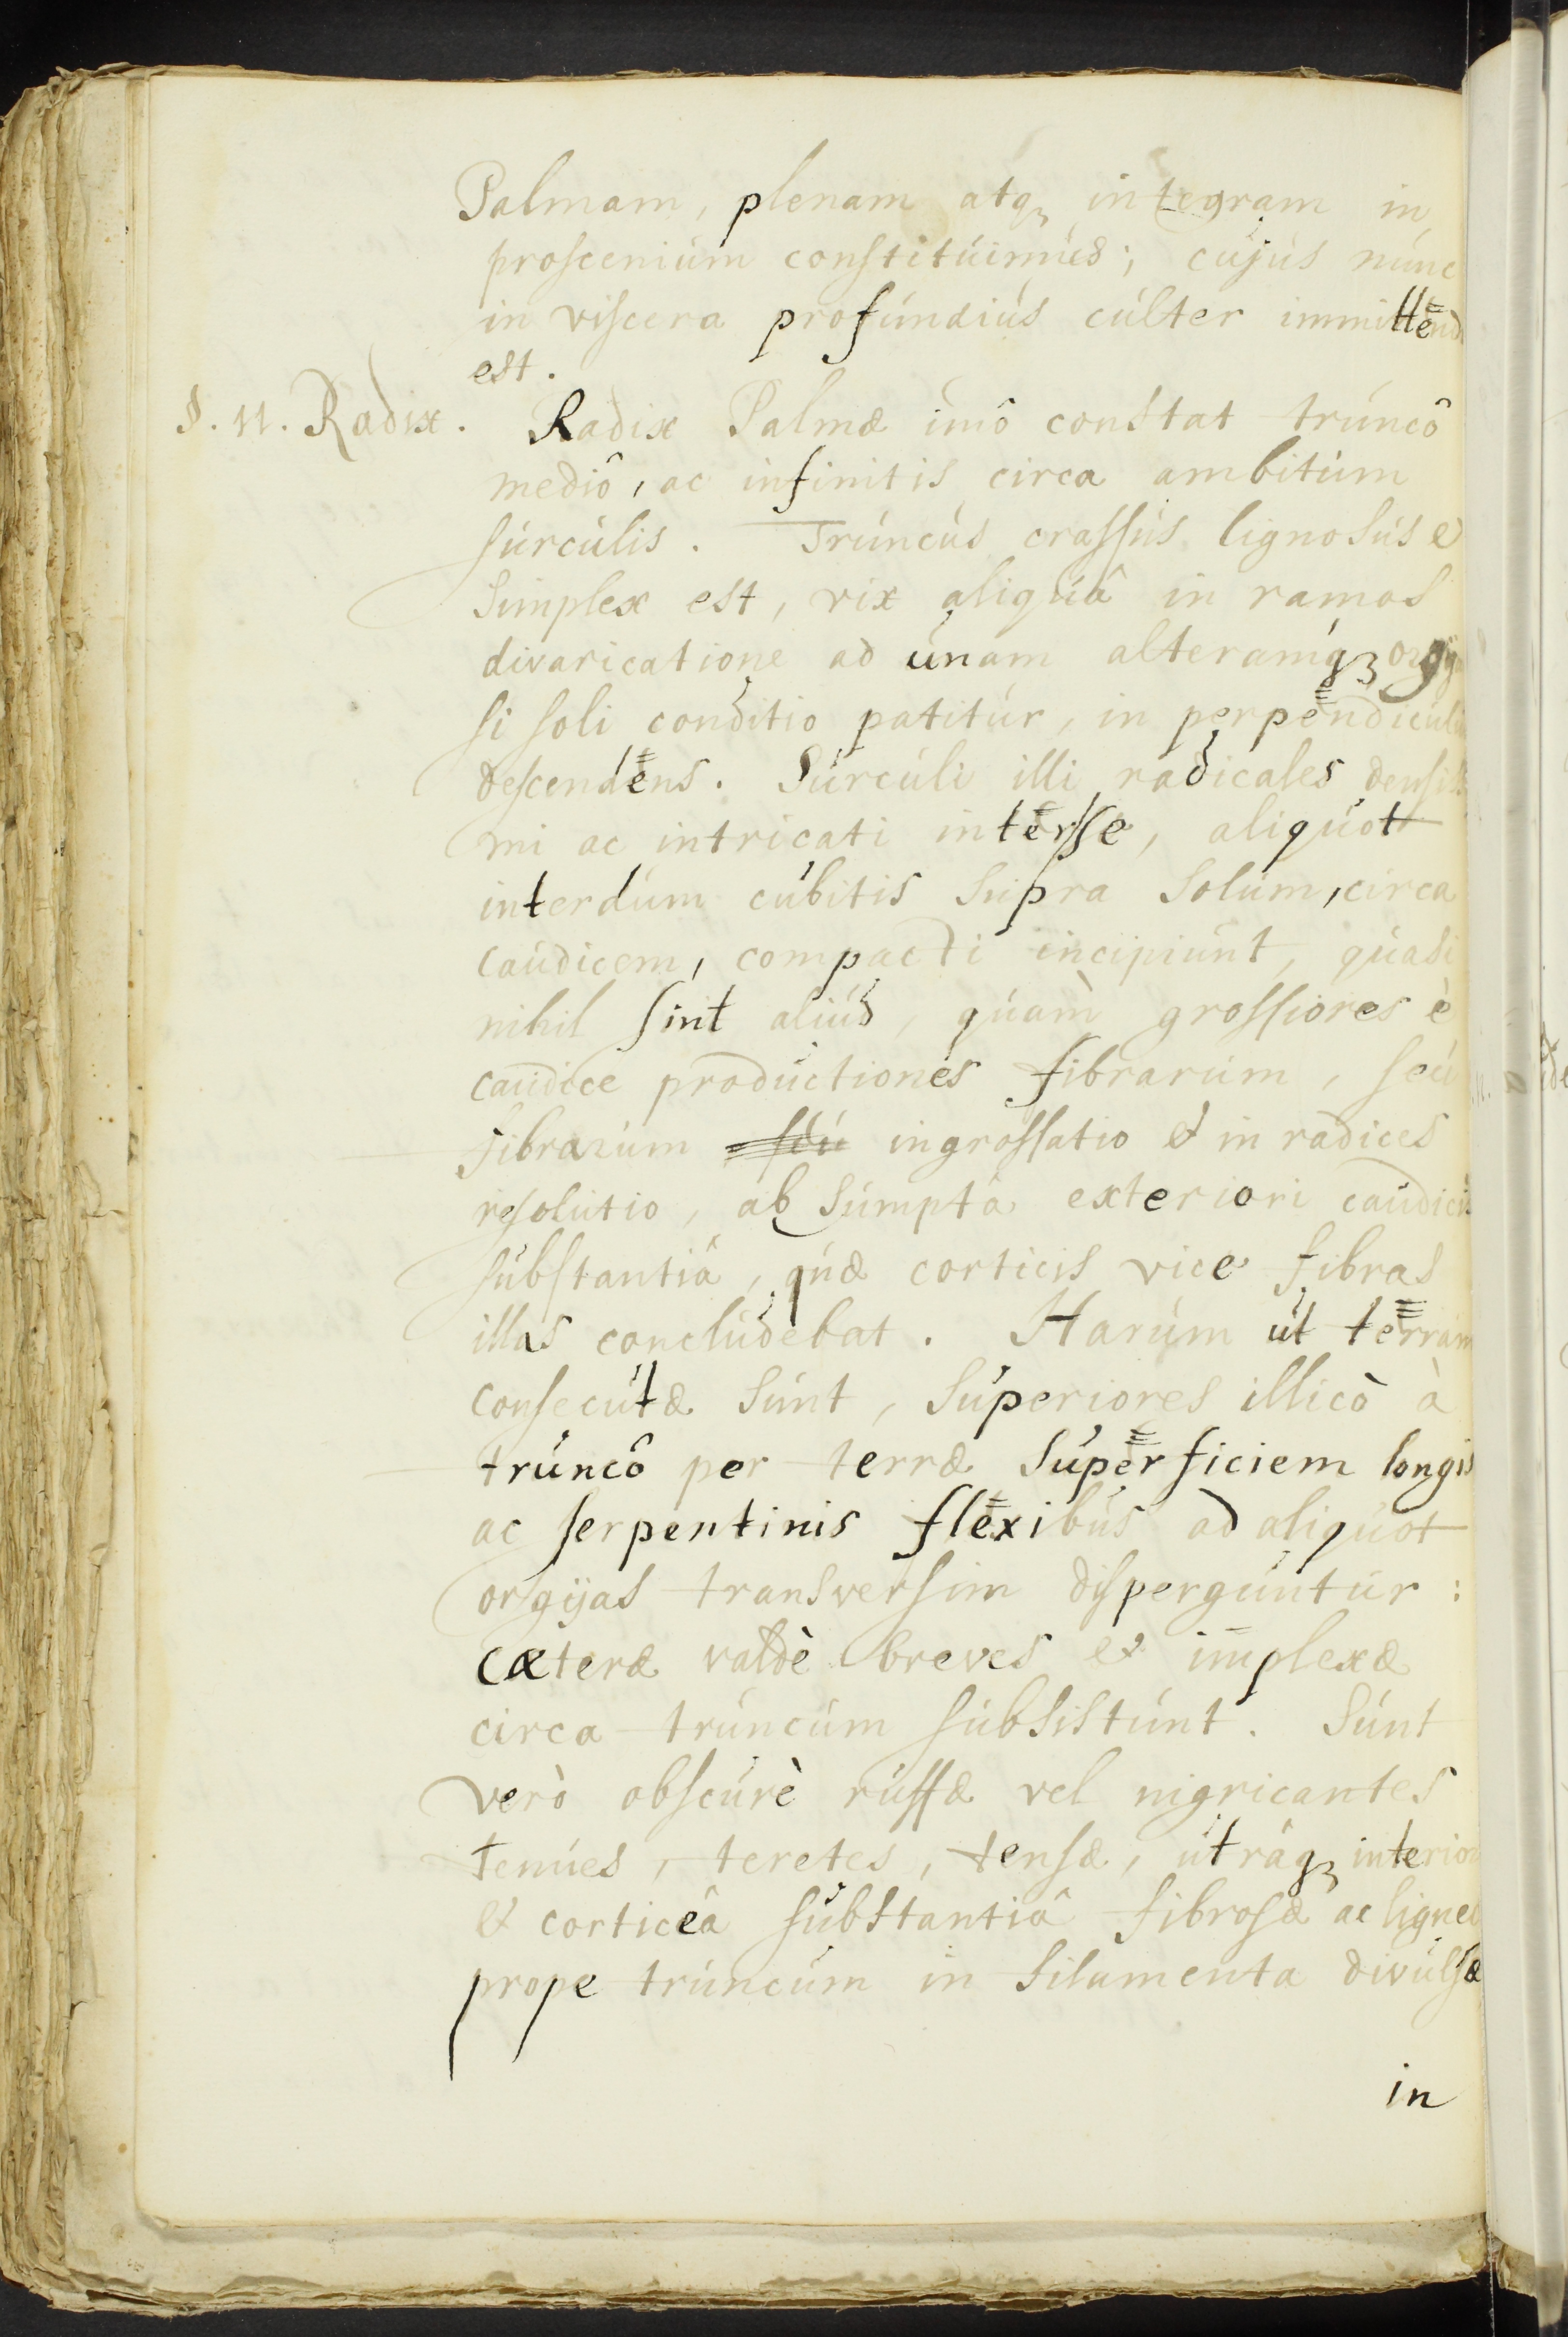 Palmam, plenam atq3 integram in
proscenium constituimus; cujus nunc
in viscera profundius culter immittend
est.
§. 11. Radix. Radix Palmæ imô constat truncô
mediô, ac infinitis circa ambitum
surculis. Truncus crassus lignosus e
simplex est, vix aliquâ in ramos
divaricatione ad unam alteramq3 orgy
si soli conditio patitur, in perpendicul
descendens. Surculi illi radicales densis
mi ac intricati inter se, aliquot
interdum cubitis supra solum, circa
caudicem, compacti incipiunt, quasi
nihil sint aliud, quam̀ grossiores è
caudice productiones fibrarum, seu
fibrarum ingrossatio & in radices
resolutio, ab sumptâ exteriori caudicis
substantiâ, quæ corticis vice fibras
illas concludebat. Harum ut terram
consecutæ sunt, superiores illicò à
truncô per terræ superficiem longis
ac serpentinis flexibus ad aliquot
orgijas transversim disperguntur:
cæteræ valdè breves et implexæ
circa truncum subsistunt. Sunt
verò obscurè ruffæ vel nigricantes
tenues, teretes, tensæ, utrâq3 interior
& corticeâ substantiâ fibrosæ ac ligneæ
prope truncum in filamenta divulsæ
in